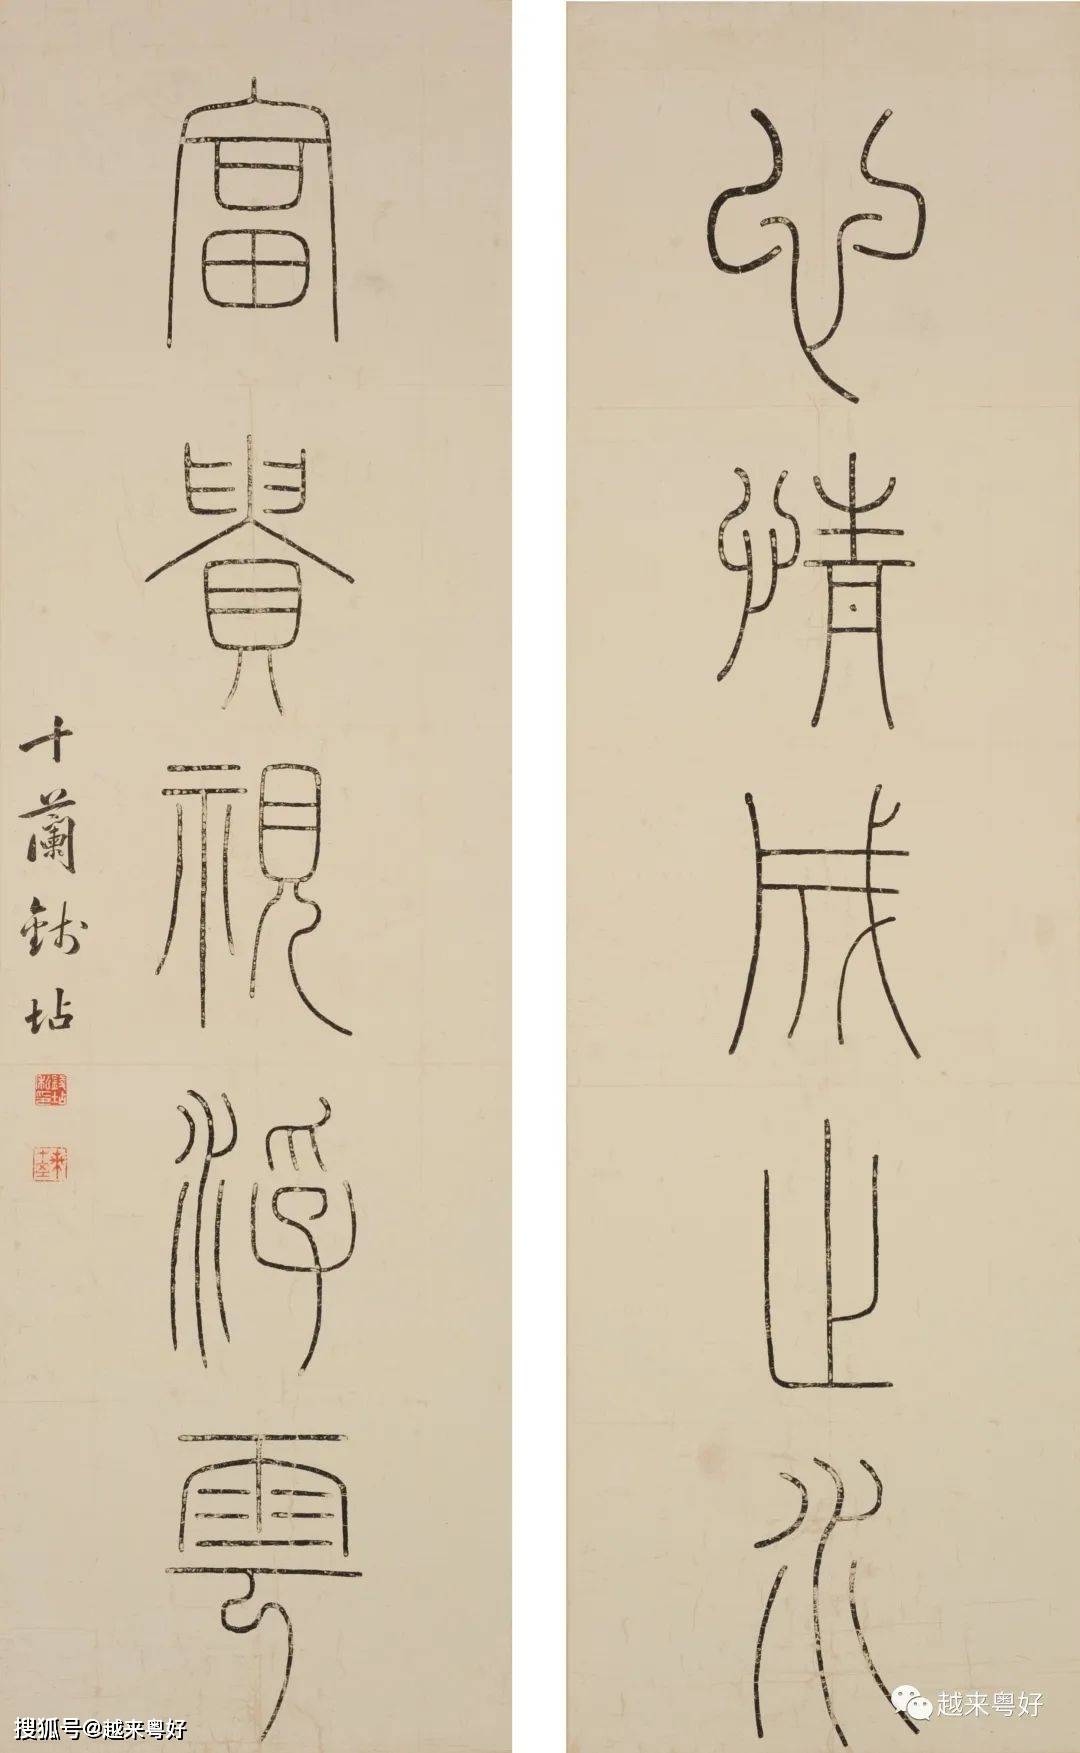 心情成止水
富貴視浮雲
十蘭錢坫
錢坫私印
搜狐号@越来粤好
越来粤好